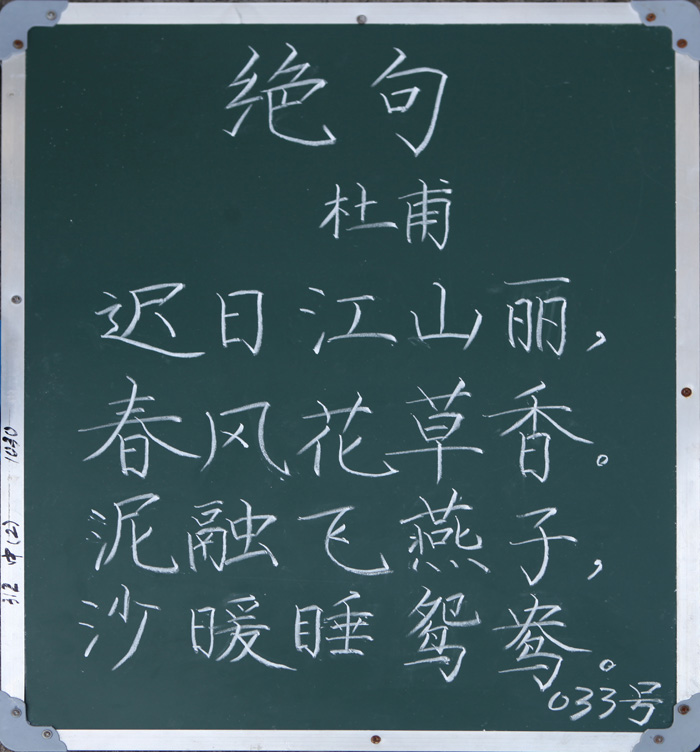 绝句
杜甫
迟日江山丽，
春风花草香。
泥融飞燕子，
沙暖睡鸳鸯。
033号
312 中(2) 1030